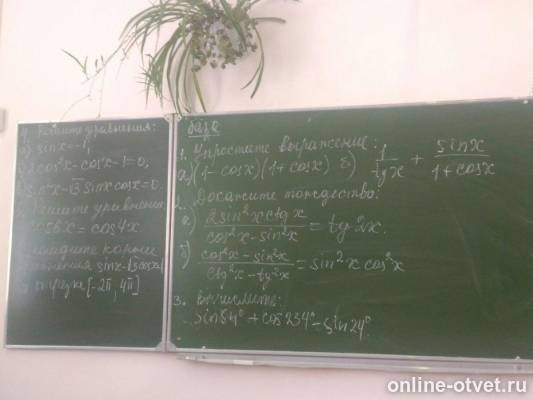 Решите уравнения:
sin x = -1,
2cos²x - cos x - 1 = 0,
sin²x - √3 sin x cos x = 0.
уравнение
cos 6x = cos 4x
корни
sin x - √3 cos x
[-2π, 4π]
база
1. Упростите выражение:
а) (1 - cos x)(1 + cos x) б) 1/tg x + sin x/1 + cos x
2. Докажите тождество:
а) 2sin²x ctg x/cos²x - sin²x = tg 2x.
б) cos²x - sin²x/ctg²x - tg²x = sin²x cos²x
3. Вычислите:
sin 84° + cos 234° - sin 24°
online-otvet.ru